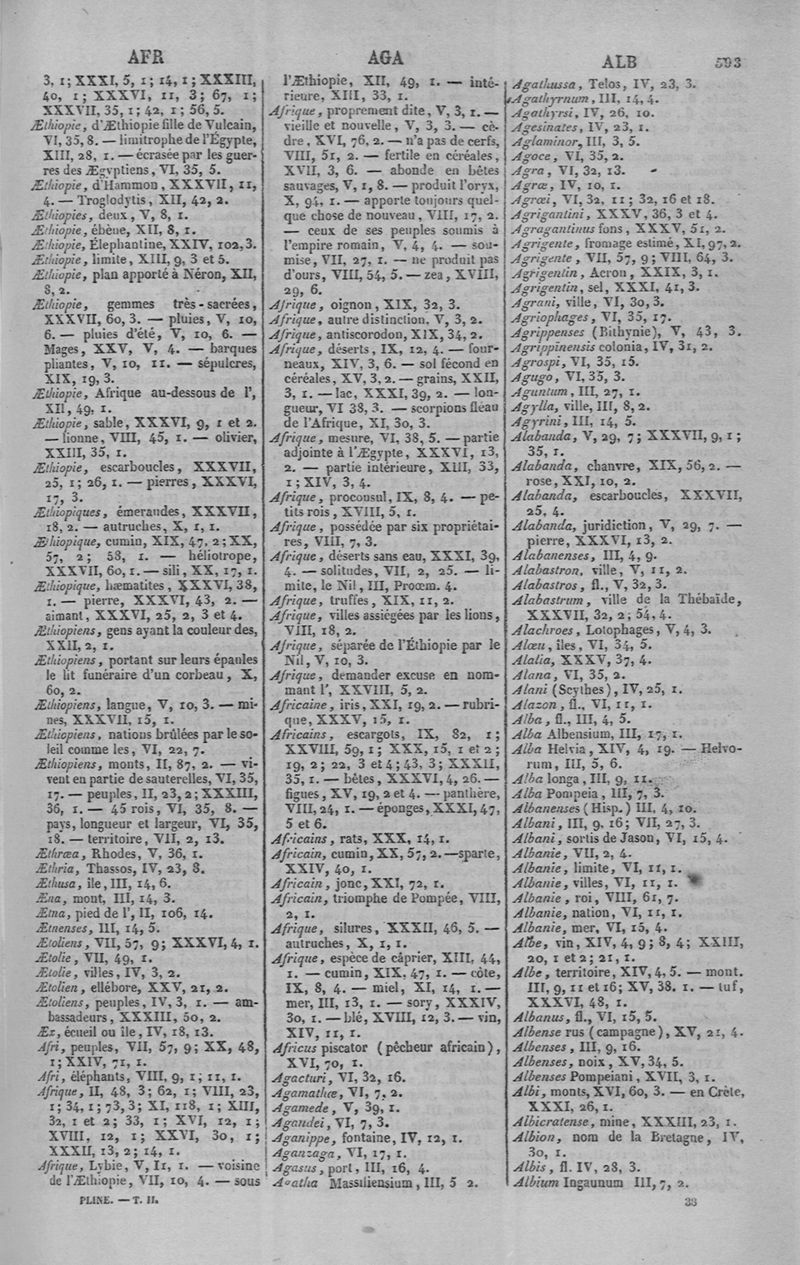 AFR
3, 1; XXXI, 5, 1; 14, 1; XXXIII,
40, 1; XXXVI, 11, 3; 67, 1;
XXXVII, 35, 1; 42, 1; 56, 5.
Æthiopie, d'Æthiopie fille de Vulcain,
VI, 35, 8. — limitrophe de l'Égypte,
XIII, 28, 1. — écrasée par les guer-
res des Ægyptiens, VI, 35, 5.
Æthiopie, d'Hammon, XXXVII, 11,
4. — Troglodytis, XII, 42, 2.
Æthiopies, deux, V, 8, 1.
Æthiopie, ébène, XII, 8, 1.
Æthiopie, Élephantine, XXIV, 102, 3.
Æthiopie, limite, XIII, 9, 3 et 5.
Æthiopie, plan apporté à Néron, XII,
8, 2.
Æthiopie, gemmes très-sacrées,
XXXVII, 60, 3. — pluies, V, 10,
6. — pluies d'été, V, 10, 6. —
Mages, XXV, V, 4. — barques
pliantes, V, 10, 11. — sépulcres,
XIX, 19, 3.
Æthiopie, Afrique au-dessous de l',
XII, 49, 1.
Æthiopie, sable, XXXVI, 9, 1 et 2.
— lionne, VIII, 45, 1. — olivier,
XXIII, 35, 1.
Æthiopie, escarboucles, XXXVII,
25, 1; 26, 1. — pierres, XXXVI,
17, 3.
Æthiopiques, émeraudes, XXXVII,
18, 2. — autruches, X, 1, 1.
Æthiopique, cumin, XIX, 47, 2; XX,
57, 2; 58, 1. — héliotrope,
XXXVII, 60, 1. — sili, XX, 17, 1.
Æthiopique, hæmatites, XXXVI, 38,
1. — pierre, XXXVI, 43, 2. —
aimant, XXXVI, 25, 2, 3 et 4.
Æthiopiens, gens ayant la couleur des,
XXII, 2, 1.
Æthiopiens, portant sur leurs épaules
le lit funéraire d'un corbeau, X,
60, 2.
Æthiopiens, langue, V, 10, 3. — mi-
nes, XXXVII, 15, 1.
Æthiopiens, nations brûlées par le so-
leil comme les, VI, 22, 7.
Æthiopiens, monts, II, 87, 2. — vi-
vent en partie de sauterelles, VI, 35,
17. — peuples, II, 23, 2; XXXIII,
36, 1. — 45 rois, VI, 35, 8. —
pays, longueur et largeur, VI, 35,
18. — territoire, VII, 2, 13.
Æthræa, Rhodes, V, 36, 1.
Æthria, Thassos, IV, 23, 8.
Æthusa, île, III, 14, 6.
Ætna, mont, III, 14, 3.
Ætna, pied de l', II, 106, 14.
Ætnenses, III, 14, 5.
Ætoliens, VII, 57, 9; XXXVI, 4, 1.
Ætolie, VII, 49, 1.
Ætolie, villes, IV, 3, 2.
Ætolien, ellébore, XXV, 21, 2.
Ætoliens, peuples, IV, 3, 1. — am-
bassadeurs, XXXIII, 50, 2.
Æx, écueil ou île, IV, 18, 13.
Afri, peuples, VII, 57, 9; XX, 48,
1; XXIV, 71, 1.
Afri, éléphants, VIII, 9, 1; 11, 1.
Afrique, II, 48, 3; 62, 1; VIII, 23,
1; 34, 1; 73, 3; XI, 118, 1; XIII,
32, 1 et 2; 33, 1; XVI, 12, 1;
XVIII, 12, 1; XXVI, 30, 1;
XXXII, 13, 2; 14, 1.
Afrique, Lybie, V, I1, 1. — voisine
de l'Æthiopie, VII, 10, 4. — sous
PLINE. — T. II.
AGA
l'Æthiopie, XII, 49, 1. — inté-
rieure, XIII, 33, 1.
Afrique, proprement dite, V, 3, 1. —
vieille et nouvelle, V, 3, 3. — cè-
dre, XVI, 76, 2. — n'a pas de cerfs,
VIII, 51, 2. — fertile en céréales,
XVII, 3, 6. — abonde en bêtes
sauvages, V, 1, 8. — produit l'oryx,
X, 94, 1. — apporte toujours quel-
que chose de nouveau, VIII, 17, 2.
— ceux de ses peuples soumis à
l'empire romain, V, 4, 4. — sou-
mise, VII, 27, 1. — ne produit pas
d'ours, VIII, 54, 5. — zea, XVIII,
29, 6.
Afrique, oignon, XIX, 32, 3.
Afrique, autre distinction, V, 3, 2.
Afrique, antiscorodon, XIX, 34, 2.
Afrique, déserts, IX, 12, 4. — four-
neaux, XIV, 3, 6. — sol fécond en
céréales, XV, 3, 2. — grains, XXII,
3, 1. — lac, XXXI, 39, 2. — lon-
gueur, VI 38, 3. — scorpions fléau
de l'Afrique, XI, 30, 3.
Afrique, mesure, VI, 38, 5. — partie
adjointe à l'Ægypte, XXXVI, 13,
2. — partie intérieure, XIII, 33,
1; XIV, 3, 4.
Afrique, proconsul, IX, 8, 4. — pe-
tits rois, XVIII, 5, 1.
Afrique, possédée par six propriétai-
res, VIII, 7, 3.
Afrique, déserts sans eau, XXXI, 39,
4. — solitudes, VII, 2, 25. — li-
mite, le Nil, III, Proœm. 4.
Afrique, truffes, XIX, 11, 2.
Afrique, villes assiégées par les lions,
VIII, 18, 2.
Afrique, séparée de l'Éthiopie par le
Nil, V, 10, 3.
Afrique, demander excuse en nom-
mant l', XXVIII, 5, 2.
Africaine, iris, XXI, 19, 2. — rubri-
que, XXXV, 15, 1.
Africains, escargots, IX, 82, 1;
XXVIII, 59, 1; XXX, 15, 1 et 2;
19, 2; 22, 3 et 4; 43, 3; XXXII,
35, 1. — bêtes, XXXVI, 4, 26. —
figues, XV, 19, 2 et 4. — panthère,
VIII, 24, 1. — éponges, XXXI, 47,
5 et 6.
Africains, rats, XXX, 14, 1.
Africain, cumin, XX, 57, 2. — sparte,
XXIV, 40, 1.
Africain, jonc, XXI, 72, 1.
Africain, triomphe de Pompée, VIII,
2, 1.
Afrique, silures, XXXII, 46, 5. —
autruches, X, 1, 1.
Afrique, espèce de câprier, XIII, 44,
1. — cumin, XIX, 47, 1. — côte,
IX, 8, 4. — miel, XI, 14, 1. —
mer, III, 13, 1. — sory, XXXIV,
30, 1. — blé, XVIII, 12, 3. — vin,
XIV, 11, 1.
Africus piscator (pêcheur africain),
XVI, 70, 1.
Agacturi, VI, 32, 16.
Agamathæ, VI, 7, 2.
Agamede, V, 39, 1.
Agandei, VI, 7, 3.
Aganippe, fontaine, IV, 12, 1.
Aganzaga, VI, 17, 1.
Agasus, port, III, 16, 4.
Agatha Massiliensium, III, 5 2.
ALB 593
Agathussa, Telos, IV, 23, 3.
Agathyrnum, III, 14, 4.
Agathyrsi, IV, 26, 10.
Agesinates, IV, 23, 1.
Aglaminor, III, 3, 5.
Agoce, VI, 35, 2.
Agra, VI, 32, 13.
Agræ, IV, 10, 1.
Agræi, VI, 32, 11; 32, 16 et 18.
Agrigantini, XXXV, 36, 3 et 4.
Agragantinus fons, XXXV, 51, 2.
Agrigente, fromage estimé, XI, 97, 2.
Agrigente, VII, 57, 9; VIII, 64, 3.
Agrigentin, Acron, XXIX, 3, 1.
Agrigentin, sel, XXXI, 41, 3.
Agrani, ville, VI, 30, 3.
Agriophages, VI, 35, 17.
Agrippenses (Bithynie), V, 43, 3.
Agrippinensis colonia, IV, 31, 2.
Agrospi, VI, 35, 15.
Agugo, VI, 35, 3.
Aguntum, III, 27, 1.
Agylla, ville, III, 8, 2.
Agyrini, III, 14, 5.
Alabanda, V, 29, 7; XXXVII, 9, 1;
35, 1.
Alabanda, chanvre, XIX, 56, 2. —
rose, XXI, 10, 2.
Alabanda, escarboucles, XXXVII,
25, 4.
Alabanda, juridiction, V, 29, 7. —
pierre, XXXVI, 13, 2.
Alabanenses, III, 4, 9.
Alabastron, ville, V, 11, 2.
Alabastros, fl., V, 32, 3.
Alabastrum, ville de la Thébaïde,
XXXVII, 32, 2; 54, 4.
Alachroes, Lotophages, V, 4, 3.
Alæu, îles, VI, 34, 5.
Alalia, XXXV, 37, 4.
Alana, VI, 35, 2.
Alani (Scythes), IV, 25, 1.
Alazon, fl., VI, 11, 1.
Alba, fl., III, 4, 5.
Alba Albensium, III, 17, 1.
Alba Helvia, XIV, 4, 19. — Helvo-
rum, III, 5, 6.
Alba longa, III, 9, 11.
Alba Pompeia, III, 7, 3.
Albanenses (Hisp.) III, 4, 10.
Albani, III, 9, 16; VII, 27, 3.
Albani, sortis de Jason, VI, 15, 4.
Albanie, VII, 2, 4.
Albanie, limite, VI, 11, 1.
Albanie, villes, VI, 11, 1.
Albanie, roi, VIII, 61, 7.
Albanie, nation, VI, 11, 1.
Albanie, mer, VI, 15, 4.
Albe, vin, XIV, 4, 9; 8, 4; XXIII,
20, 1 et 2; 21, 1.
Albe, territoire, XIV, 4, 5. — mont.
III, 9, 11 et 16; XV, 38, 1. — tuf,
XXXVI, 48, 1.
Albanus, fl., VI, 15, 5.
Albense rus (campagne), XV, 21, 4.
Albenses, III, 9, 16.
Albenses, noix, XV, 34, 5.
Albenses Pompeiani, XVII, 3, 1.
Albi, monts, XVI, 60, 3. — en Crète,
XXXI, 26, 1.
Albicratense, mine, XXXIII, 23, 1.
Albion, nom de la Bretagne, IV,
30, 1.
Albis, fl. IV, 28, 3.
Albium Ingaunum III, 7, 2.
38